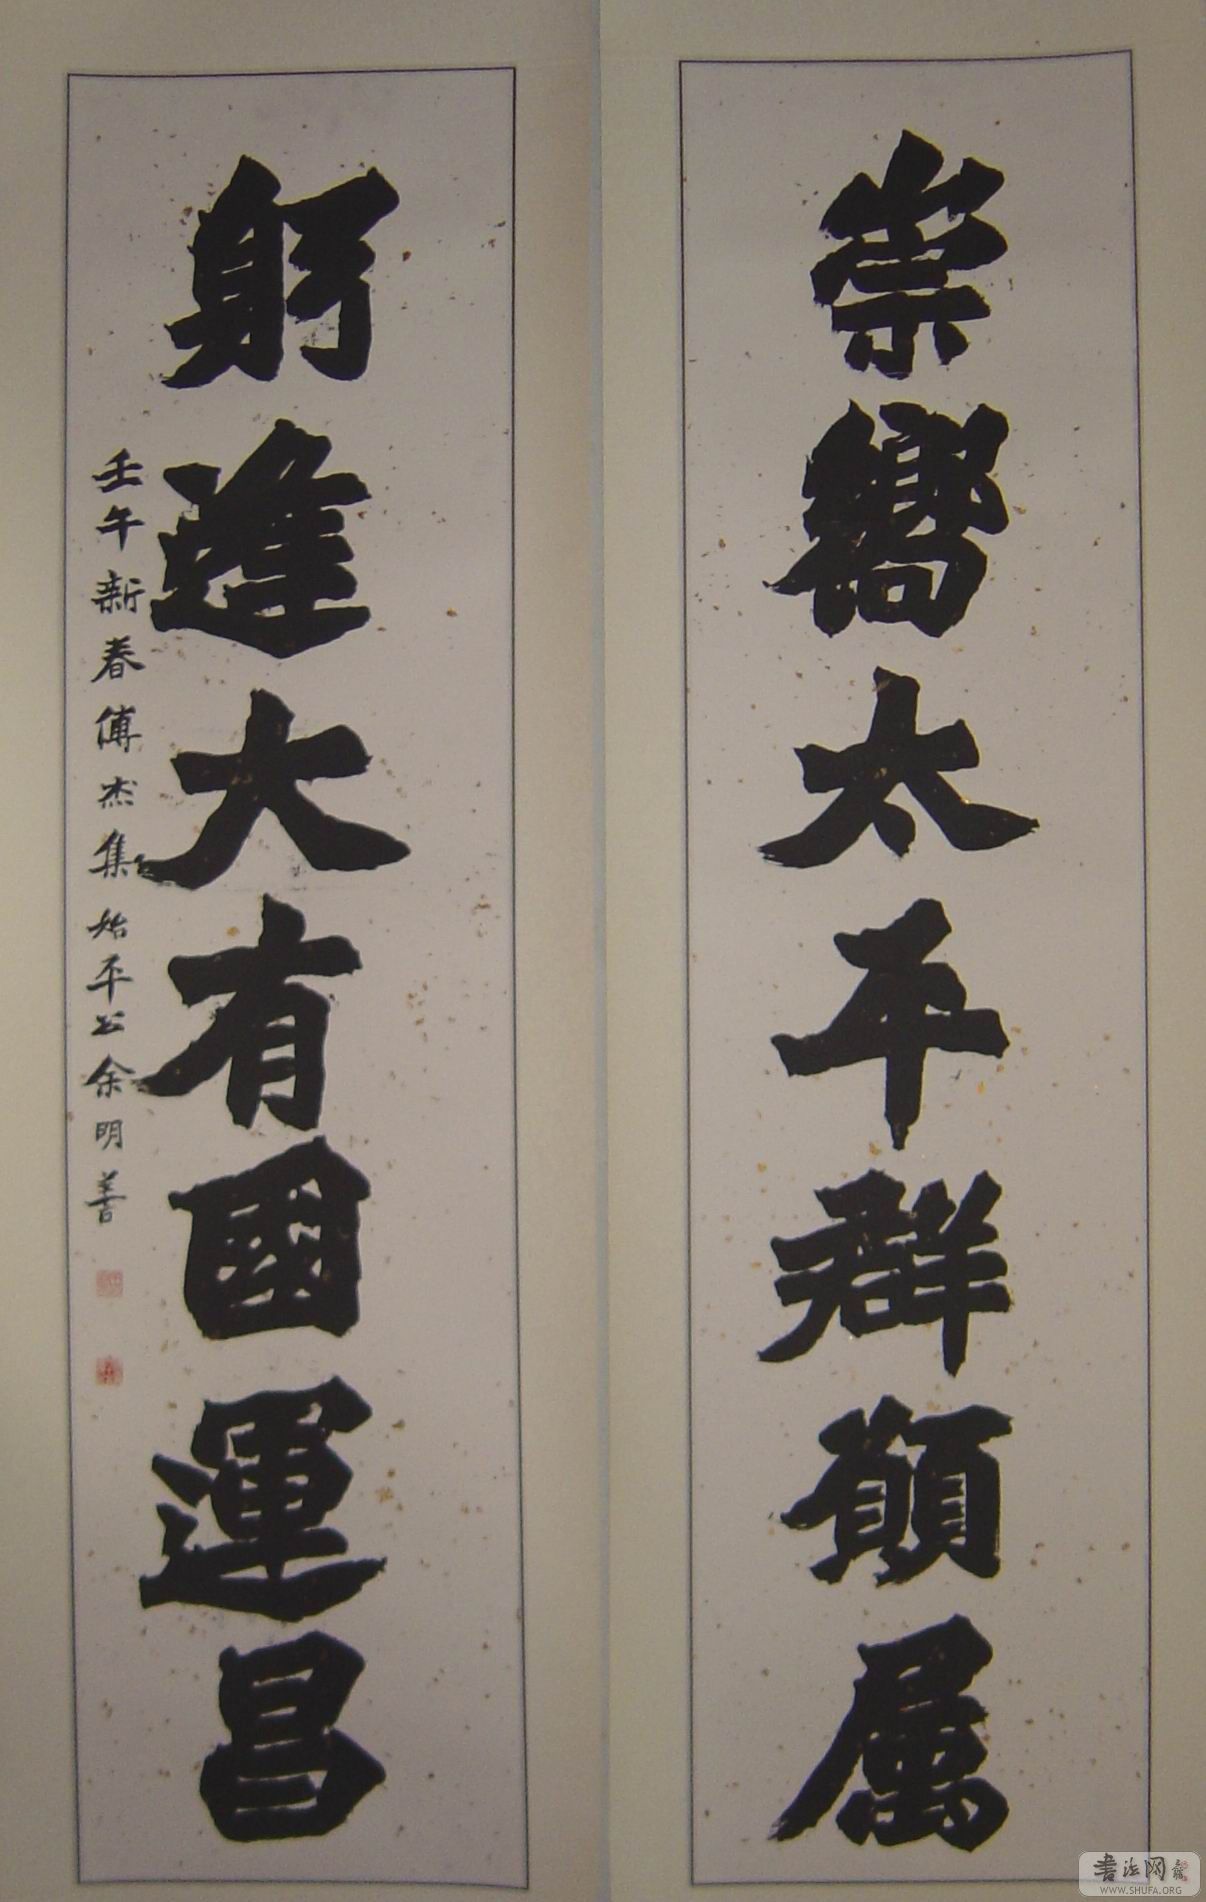 崇嚮太平群願屬
躬逢大有國運昌
壬午新春傅杰集始平公余明善
書法网
WWW.SHUFA.ORG